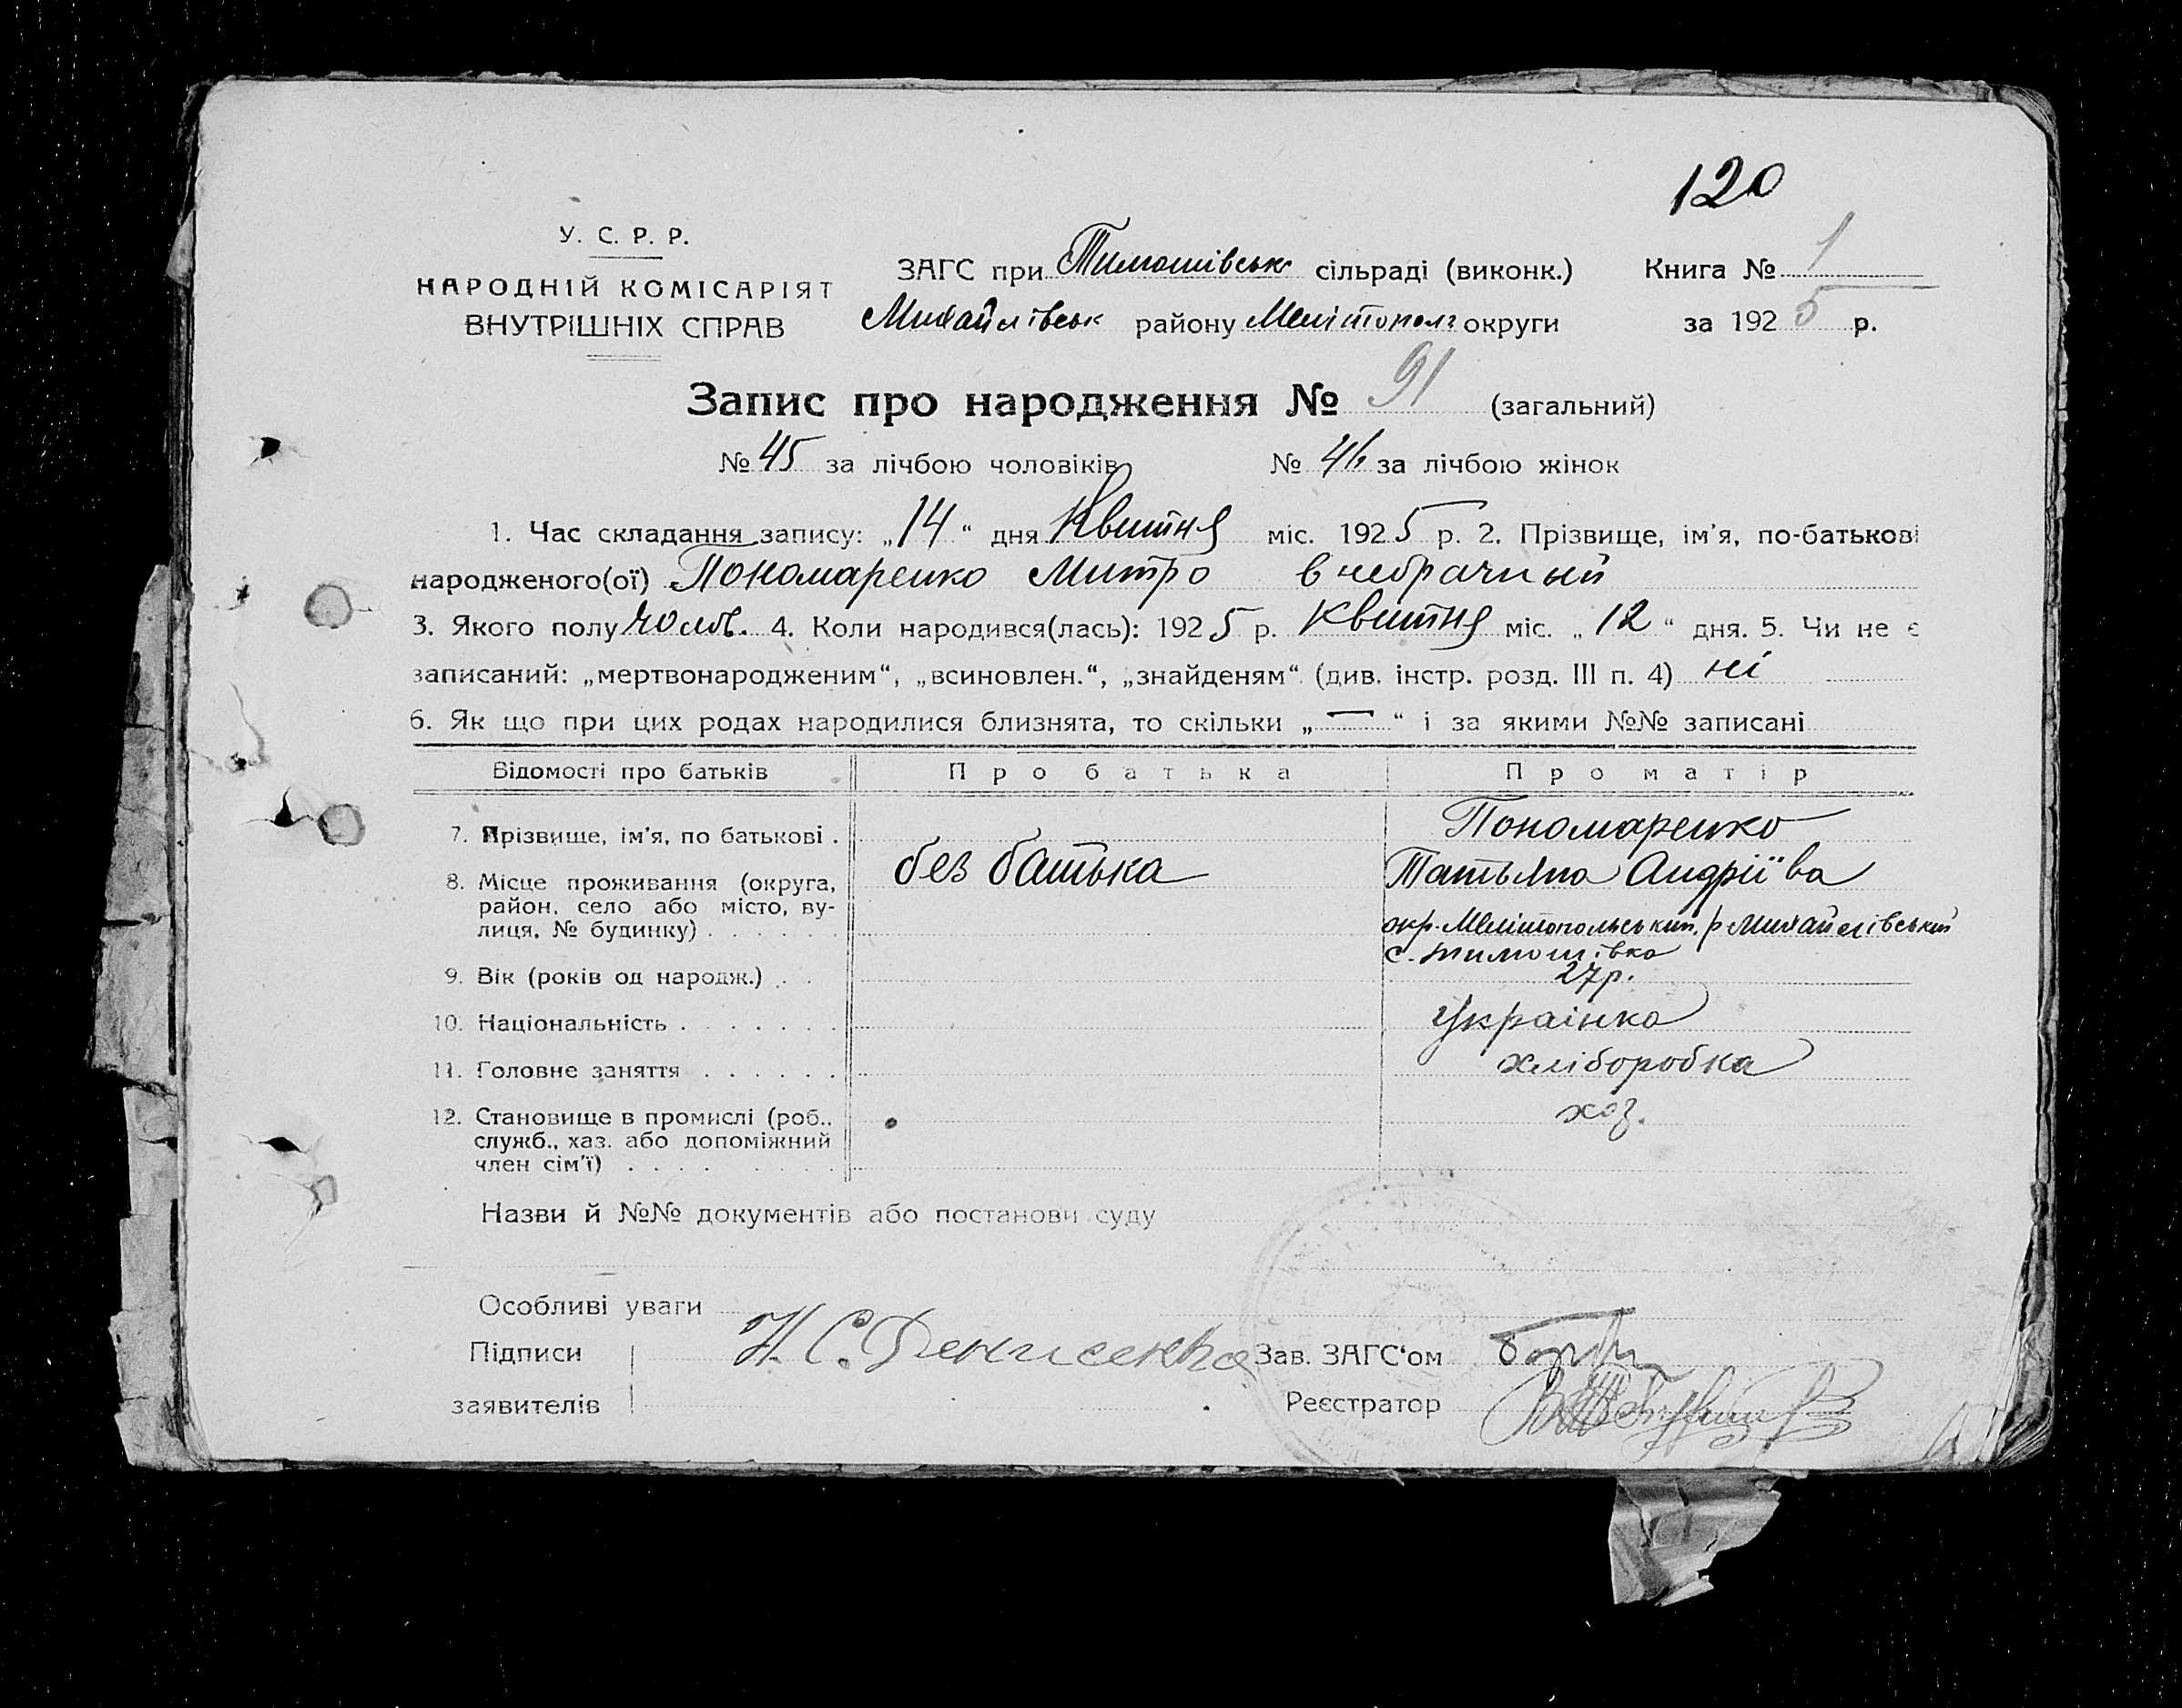 120
У. С. Р. Р.
НАРОДНІЙ КОМІСАРІЯТ
ВНУТРІШНІХ СПРАВ
ЗАГС при Тимошівськ сільраді (виконк.) Книга № 1
Михайлівськ району Мелітопол округи за 1925 р.
Запис про народження № 91 (загальний)
№ 45 за лічбою чоловіків № 46 за лічбою жінок
1. Час складання запису: „14“ дня Квітня міс. 1925 р. 2. Прізвище, ім'я, по-батькові
народженого(ої) Пономаренко Митро внебрачный
3. Якого полу чолов. 4. Коли народився(лась): 1925 р. Квітня міс. „12“ дня. 5. Чи не є
записаний: „мертвонародженим“, „всиновлен.“, „знайденям“ (див. інстр. розд. III п. 4) ні
6. Як що при цих родах народилися близнята, то скільки „—“ і за якими №№ записані
Відомості про батьків Про батька Про матір
7. Прізвище, ім'я, по батькові . Пономаренко
без батька Татьяна Андріїва
8. Місце проживання (округа,
район, село або місто, ву-
лиця, № будинку) . . . . . . окр. Мелітопольський, р Михайлівський
с. Тимошівка
9. Вік (років од народж.) . . 27 р.
10. Національність . . . . . . . Украінка
11. Головне заняття . . . . . . хліборобка
12. Становище в промислі (роб.,
служб., хаз. або допоміжний
член сім'ї) . . . . . . . . хоз.
Назви й №№ документів або постанови суду
Особливі уваги
Підписи Н. С. Денисенко Зав. ЗАГС‘ом
заявителів Реєстратор